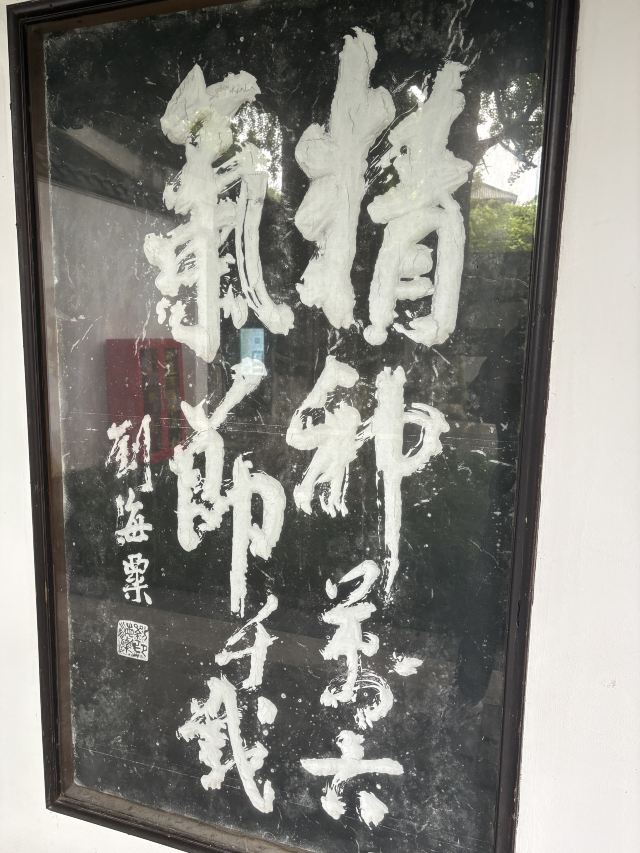 精神萬古
氣節千載
劉海粟